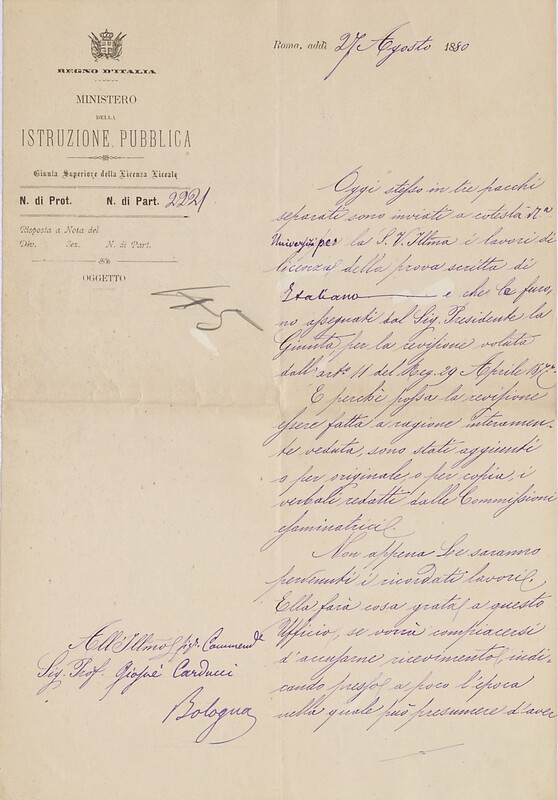 REGNO D'ITALIA
MINISTERO
DELLA
ISTRUZIONE PUBBLICA
Giunta Superiore della Licenza Liceale
N. di Prot. N. di Part. 2221
Risposta a Nota del
Div. Sez. N. di Part.
OGGETTO
Roma, addì 27 Agosto 1880
Oggi stesso in tre pacchi
separati sono inviati a cotesta Ra
Università per la S. V. Illma i lavori di
licenza della prova scritta di
Italiano e che le furo,
no assegnati dal Sig. Presidente la
Giunta, per la revisione voluta
dall'arto 11 del Reg. 29 Aprile
E perché possa la revisione
essere fatta a ragione interamen,
te veduta, sono stati aggiunti
o per originale, o per copia, i
verbali redatti dalle Commissioni
esaminatrici.
Non appena Le saranno
pervenuti i ricordati lavori,
Ella farà cosa grata a questo
Ufficio, se vorrà compiacersi
d'accusarne ricevimento, indi,
cando presso a poco l'epoca
nella quale può presumere d'aver
All'Illmo Sig. Commend
Sig. Prof. Giosuè Carducci
Bologna